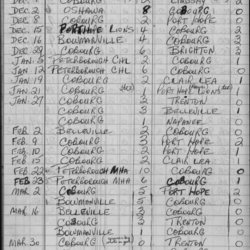 DEC 2 OSHAWA 8 COBOURG
DEC 8 COBOURG 2 PORT HOPE
DEC 15 PORT HOPE LIONS 4 COBOURG 2
DEC 16 BOWMANVILLE 4 COBOURG 2
DEC 29 COBOURG 6 BRIGHTON
JAN 5 PETERBOROUGH CHL COBOURG
JAN 12 PETERBOROUGH CHL COBOURG
JAN 19 COBOURG CLAIR LEA
JAN 21 COBOURG PORT HOPE LIONS
JAN 27 COBOURG TRENTON 0
COBOURG BELLEVILLE
COBOURG NAPANEE 0
FEB 2 BELLEVILLE COBOURG
FEB 9 COBOURG TRENTON 2
FEB 10 COBOURG PORT HOPE
FEB 15 COBOURG 2 CLAIR LEA
FEB 22 PETERBOROUGH MHA 10 COBOURG 0
FEB 23 PETERBOROUGH MHA 6 COBOURG
MAR 2 COBOURG 5 PORT HOPE
BOWMANVILLE 5 COBOURG
MAR 16 BELLEVILLE 2 COBOURG
COBOURG 3 TRENTON 0
BOWMANVILLE COBOURG 0
MAR 30 COBOURG 0 TRENTON